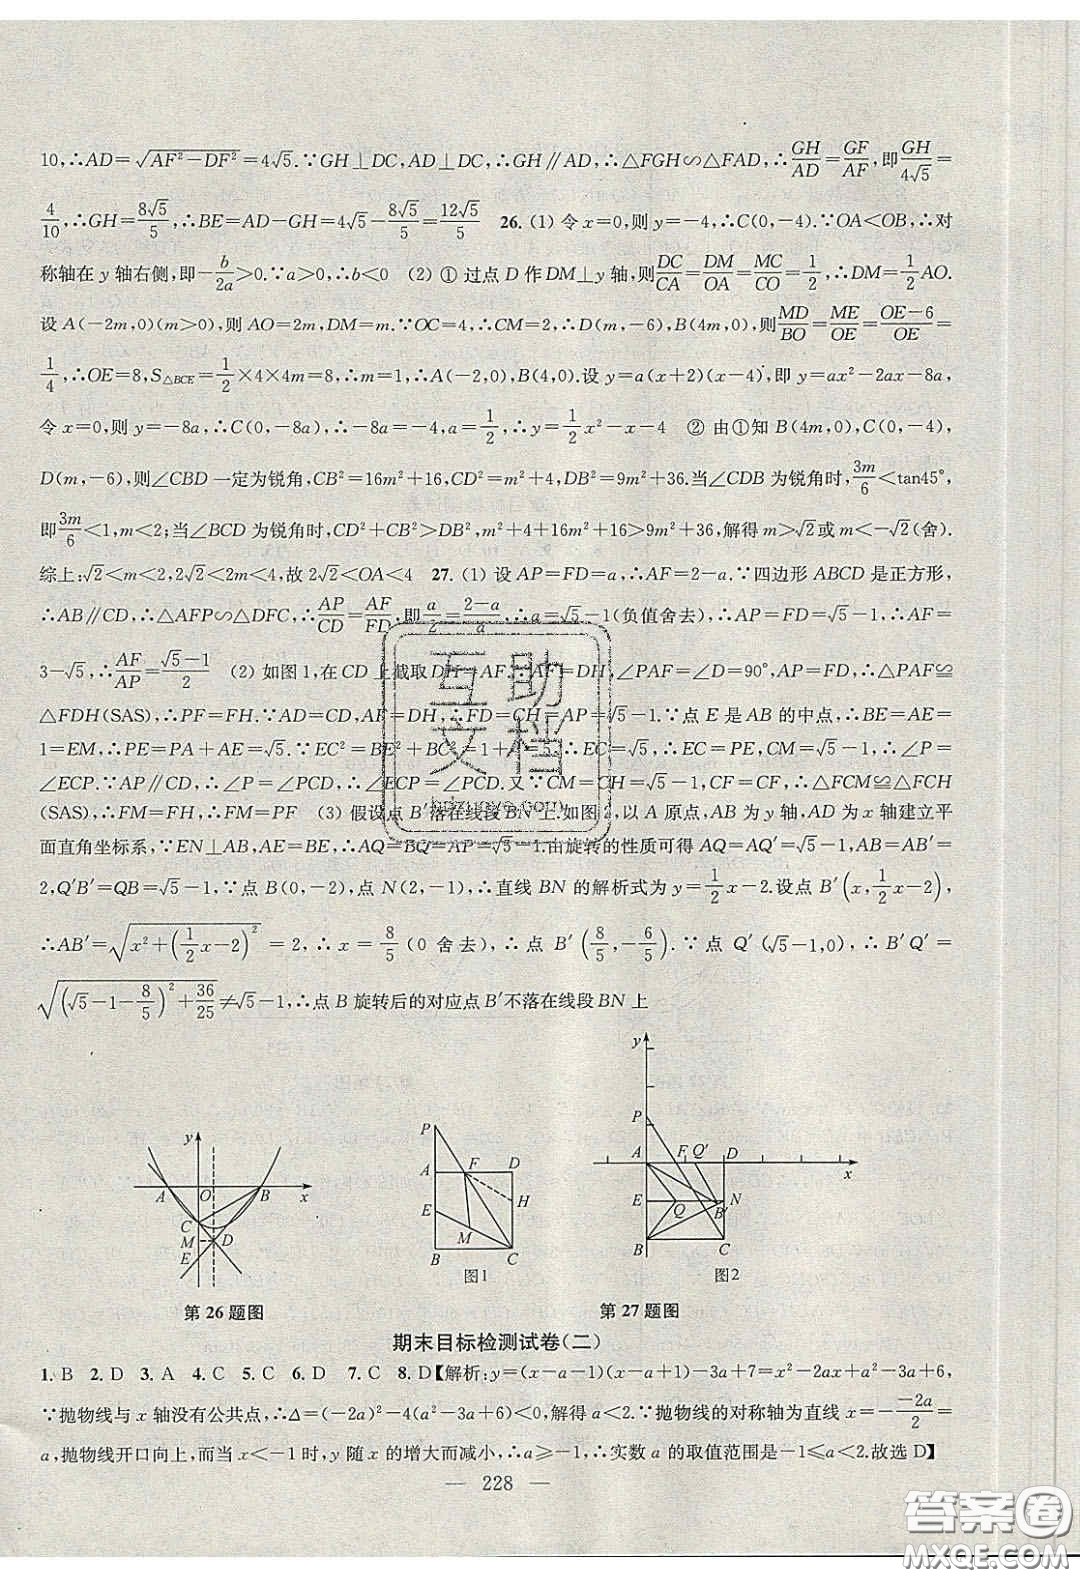 10,∴AD=√(AF²−DF²)=4√5.∵GH⊥DC,AD⊥DC,∴GH∥AD,∴△FGH∽△FAD,∴GH/AD=GF/AF,即GH/4√5=
4/10,∴GH=8√5/5,∴BE=AD−GH=4√5−8√5/5=12√5/5 26.(1) 令x=0,则y=−4,∴C(0,−4).∵OA<OB,∴对
称轴在y轴右侧,即−b/2a>0.∵a>0,∴b<0 (2) ① 过点D作DM⊥y轴,则DC/CA=DM/OA=MC/CO=1/2,∴DM=1/2AO.
设A(−2m,0)(m>0),则AO=2m,DM=m.∵OC=4,∴CM=2,∴D(m,−6),B(4m,0),则MD/BO=ME/OE=OE−6/OE=
1/4,∴OE=8,S△BCE=1/2×4×4m=8,∴A(−2,0),B(4,0).设y=a(x+2)(x−4),即y=ax²−2ax−8a,
令x=0,则y=−8a,∴C(0,−8a),∴−8a=−4,a=1/2,∴y=1/2x²−x−4 ② 由①知B(4m,0),C(0,−4),
D(m,−6),则∠CBD一定为锐角,CB²=16m²+16,CD²=m²+4,DB²=9m²+36.当∠CDB为锐角时,3m/6<tan45°,
即3m/6<1,m<2;当∠BCD为锐角时,CD²+CB²>DB²,m²+4+16m²+16>9m²+36,解得m>√2或m<−√2(舍).
综上:√2<m<2,2√2<2m<4,故2√2<OA<4 27.(1) 设AP=FD=a,∴AF=2−a.∵四边形ABCD是正方形,
∴AB∥CD,∴△AFP∽△DFC,∴AP/CD=AF/FD,即a/2=2−a/a,∴a=√5−1(负值舍去),∴AP=FD=√5−1,∴AF=
3−√5,∴AF/AP=√5−1/2 (2) 如图1,在CD上截取DH=AF.∵AF=DH,∠PAF=∠D=90°,AP=FD,∴△PAF≌
△FDH(SAS),∴PF=FH.∵AD=CD,AF=DH,∴FD=CH=AP=√5−1.∵点E是AB的中点,∴BE=AE=
1=EM,∴PE=PA+AE=√5.∵EC²=BE²+BC²=1+4=5,∴EC=√5,∴EC=PE,CM=√5−1,∴∠P=
∠ECP.∵AP∥CD,∴∠P=∠PCD,∴∠ECP=∠PCD.又∵CM=CH=√5−1,CF=CF,∴△FCM≌△FCH
(SAS),∴FM=FH,∴FM=PF (3) 假设点B′落在线段BN上.如图2,以A原点,AB为y轴,AD为x轴建立平
面直角坐标系,∵EN⊥AB,AE=BE,∴AQ=BQ=AP=√5−1.由旋转的性质可得AQ=AQ′=√5−1,AB=AB′=
2,Q′B′=QB=√5−1,∵点B(0,−2),点N(2,−1),∴直线BN的解析式为y=1/2x−2.设点B′(x,1/2x−2),
∴AB′=√(x²+(1/2x−2)²)=2,∴x=8/5(0舍去),∴点B′(8/5,−6/5).∵点Q′(√5−1,0),∴B′Q′=
√((√5−1−8/5)²+36/25)≠√5−1,∴点B旋转后的对应点B′不落在线段BN上
y
A O B x
C
M D
E
第26题图
P
A F D
H
E
M
B C
图1
y
P
A F Q′ D x
E Q B′ N
B C
图2
第27题图
期末目标检测试卷(二)
1. B 2. D 3. A 4. C 5. C 6. D 7. C 8. D【解析:y=(x−a−1)(x−a+1)−3a+7=x²−2ax+a²−3a+6,
∵抛物线与x轴没有公共点,∴Δ=(−2a)²−4(a²−3a+6)<0,解得a<2.∵抛物线的对称轴为直线x=−−2a/2=
a,抛物线开口向上,而当x<−1时,y随x的增大而减小,∴a≥−1,∴实数a的取值范围是−1≤a<2.故选D】
— 228 —
互助
文档
答案圈
MXQE.COM